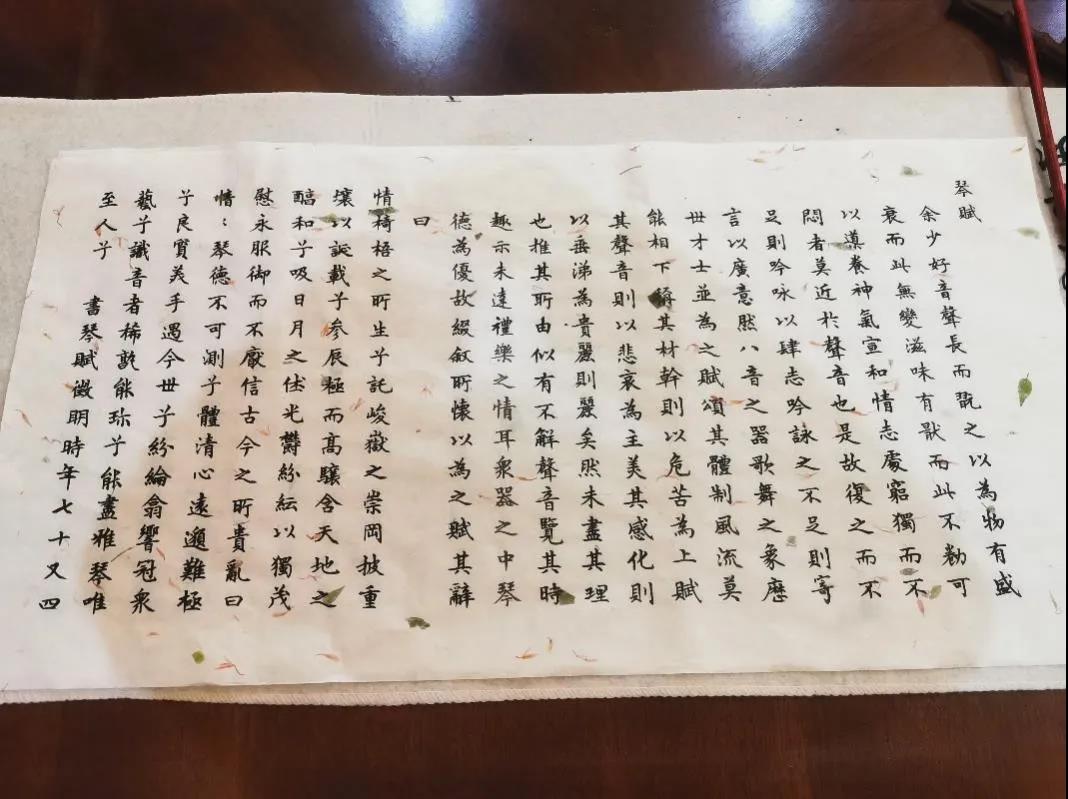 琴賦
余少好音聲長而翫之以為物有盛
衰而此無變滋味有猒而此不勌可
以導養神氣宣和情志處窮獨而不
悶者莫近於聲音也是故復之而不
足則吟咏以肆志吟詠之不足則寄
言以廣意然八音之器歌舞之象歷
丗才士並為之賦頌其體制風流莫
能相下稱其材幹則以危苦為上賦
其聲音則以悲哀為主美其感化則
以垂涕為貴麗則麗矣然未盡其理
也推其所由似有不解聲音覽其時
趣示未達禮樂之情耳衆器之中琴
德為優故綴叙所懷以為之賦其辭
曰
情椅梧之所生子託峻嶽之崇岡披重
壤以誕載子参辰極而高驤含天地之
醕和子吸日月之休光欝紛紜以獨茂
慰永服御而不厭信古今之所貴亂曰
愔：琴德不可測子體清心遠邈難極
子良質美手遇今丗子紛綸翕響冠衆
藝子識音者稀孰能珎子能盡雅琴唯
至人子 書琴賦徵明時年七十又四